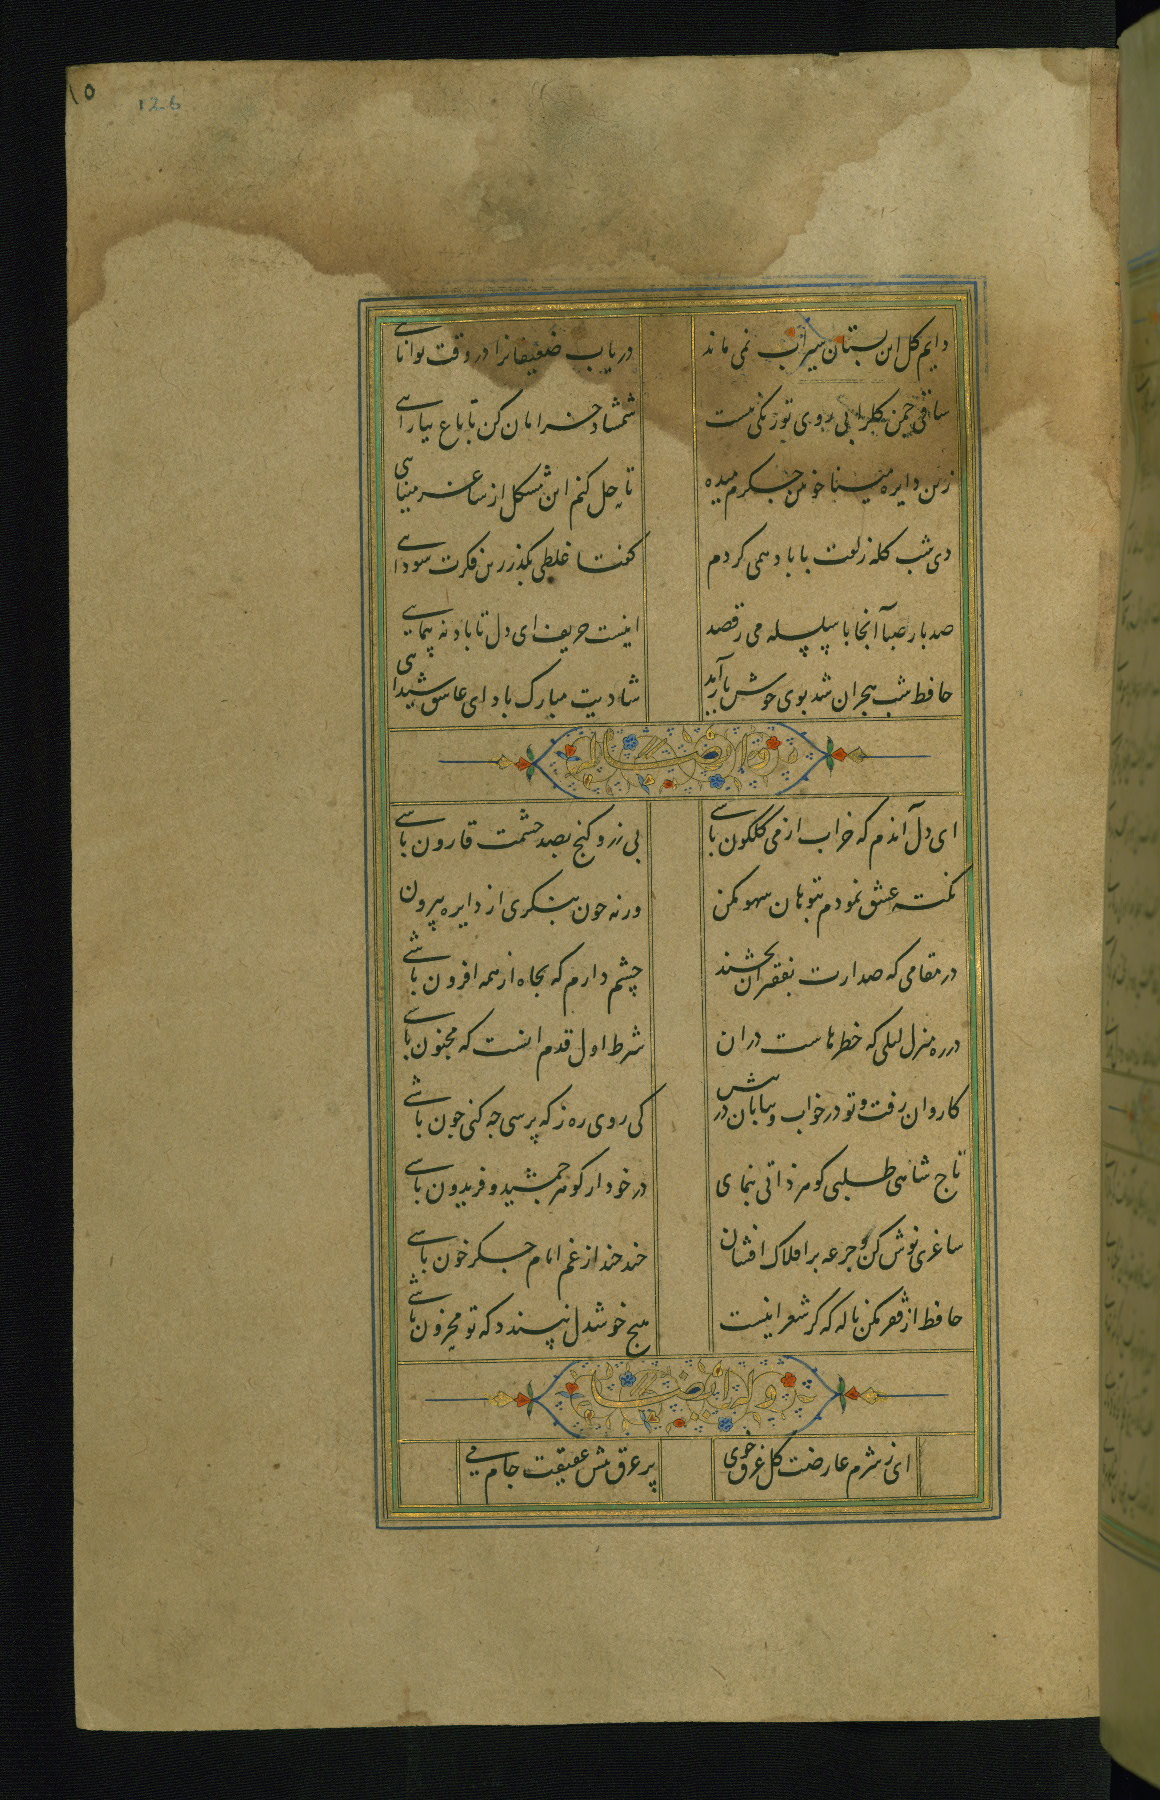 ۱۵
126
دایم کل این بستان سیراب نمی ماند دریاب ضعیفانرا در وقت توانایی
ساقی چمن کلرا بی روی تو رنکی نیست شمشاد خرامان کن تا باغ بیارایی
زین دایره مینا خونین جکرم میده تا حل کنم این مشکل از ساغر مینایی
دی شب کله زلفت با باد همی کردم کفتا غلطی بکذر زین فکرت سودایی
صد بار صبا آنجا با سلسله می رقصد اینست حریف ای دل تا باد نه پیمایی
حافظ شب هجران شد بوی خوش یار آمد شادیت مبارک باد ای عاشق شیدایی
وله ایضا
ای دل آندم که خراب از می کلکون باشی بی زر و کنج بصد حشمت قارون باشی
نکته عشق نمودم بتو هان سهو مکن ورنه چون بنکری از دایره بیرون باشی
در مقامی که صدارت بفقیران بخشند چشم دارم که بجاه از همه افزون باشی
در ره منزل لیلی که خطرهاست دران شرط اول قدم اینست که مجنون باشی
کاروان رفت و تو در خواب و بیابان در پیش کی روی ره ز که پرسی چه کنی چون باشی
تاج شاهی طلبی کوهر ذاتی بنمای در خود ار کوهر جمشید و فریدون باشی
ساغری نوش کن و جرعه بر افلاک افشان چند چند از غم ایام جکر خون باشی
حافظ از فقر مکن ناله که کر شعر اینست هیچ خوشدل نپسندد که تو محزون باشی
وله ایضا
ای ز شرم عارضت کل غرق خوی پر عرق پیش عقیقت جام می